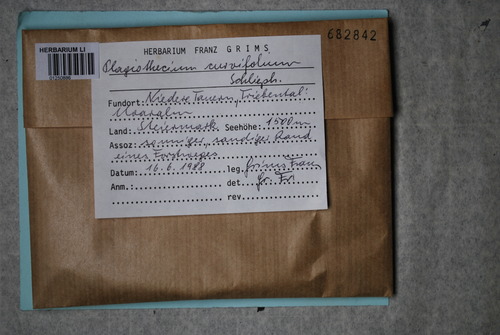 682842
HERBARIUM LI
HERBARIUM FRANZ GRIMS
Plagiothecium curvifolium
Schlieph.
Fundort: Niedere Tauern, Triebental:
Land: Steiermark Seehöhe: 1500m
Assoz: sonniger, sandiger Rand
eines Forstweges
Datum: 16.6.1988 leg. Grims Franz
Anm.: det. Gr. Fr.
rev.